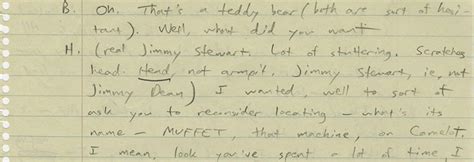 B. Oh. That's a teddy bear (both are sort of hesi
tant). Well, what did you want
H. (real Jimmy Stewart. Lot of stuttering. Scratches
head. Head not armpit. Jimmy Stewart, ie, not
Jimmy Dean) I wanted, well to sort of
ask you to reconsider locating - what's its
name - MUFFET, that machine, on Camelot.
I mean, look you've spent a lot of time, I